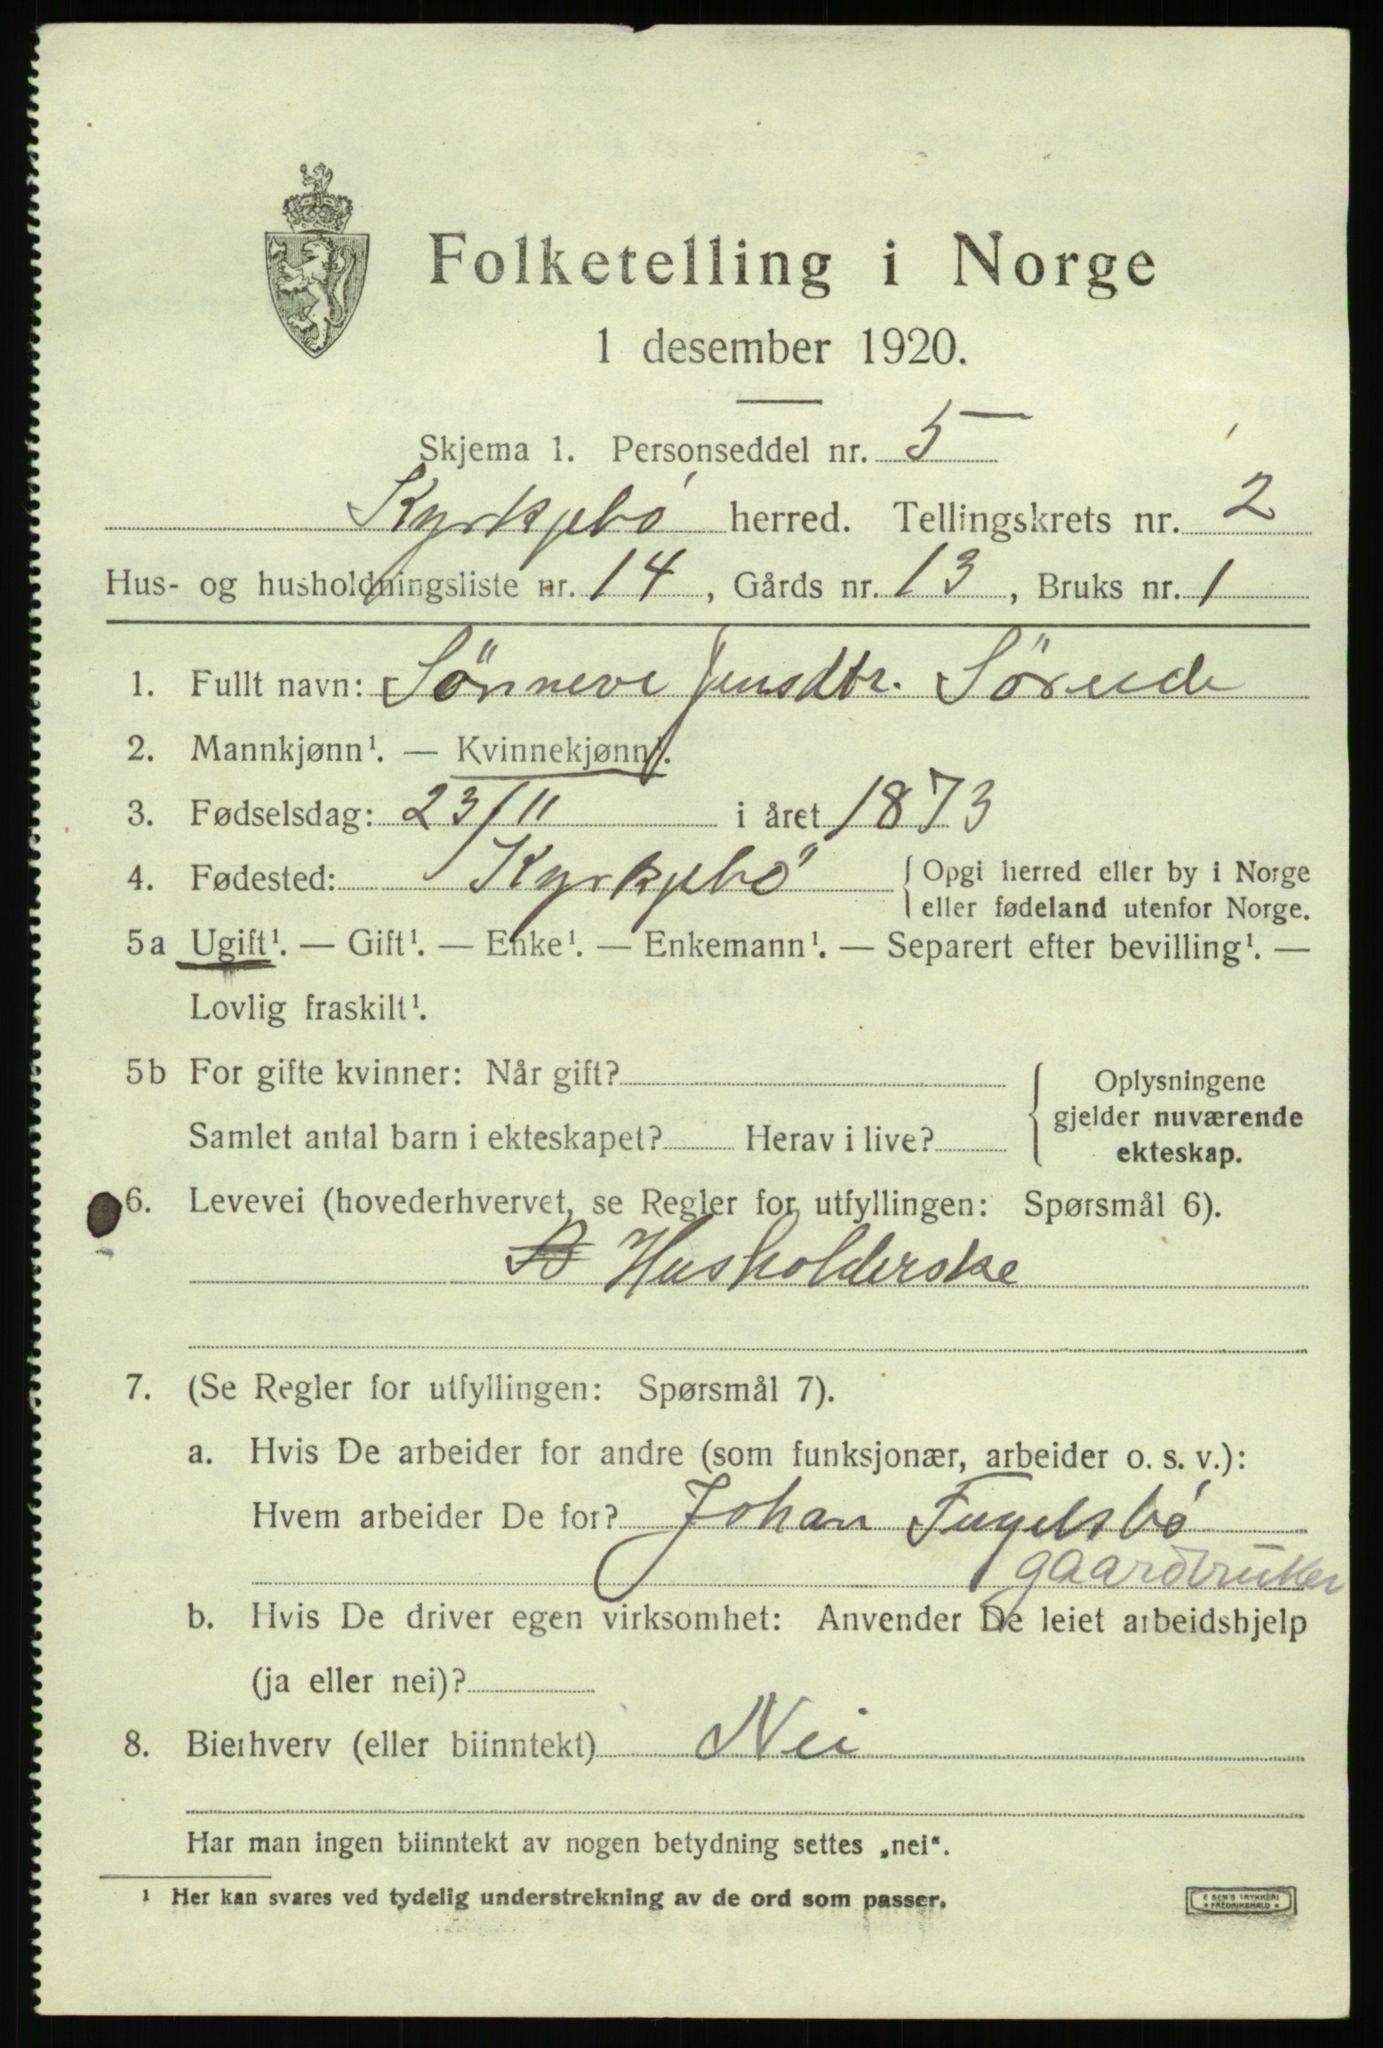 Folketelling i Norge
1 desember 1920.
Skjema 1. Personseddel nr. 5
Kyrkjebö herred. Tellingskrets nr. 2
Hus- og husholdningsliste nr. 14, Gårds nr. 13, Bruks nr. 1
1. Fullt navn: Sönneve Jensdtr. Söreide
2. Mannkjønn¹. — Kvinnekjønn¹.
3. Fødselsdag: 23/11 i året 1873
4. Fødested: Kyrkjebö { Opgi herred eller by i Norge
eller fødeland utenfor Norge.
5a Ugift¹. — Gift¹. — Enke¹. — Enkemann¹. — Separert efter bevilling¹. —
Lovlig fraskilt¹.
5b For gifte kvinner: Når gift? { Oplysningene
gjelder nuværende
Samlet antal barn i ekteskapet? Herav i live? ekteskap.
6. Levevei (hovederhvervet, se Regler for utfyllingen: Spørsmål 6).
Husholderske
7. (Se Regler for utfyllingen: Spørsmål 7).
a. Hvis De arbeider for andre (som funksjonær, arbeider o. s. v.):
Hvem arbeider De for? Johan Fuglsbö
gaardbruker
b. Hvis De driver egen virksomhet: Anvender De leiet arbeidshjelp
(ja eller nei)?
8. Bierhverv (eller biinntekt) Nei
Har man ingen biinntekt av nogen betydning settes „nei".
¹ Her kan svares ved tydelig understrekning av de ord som passer.